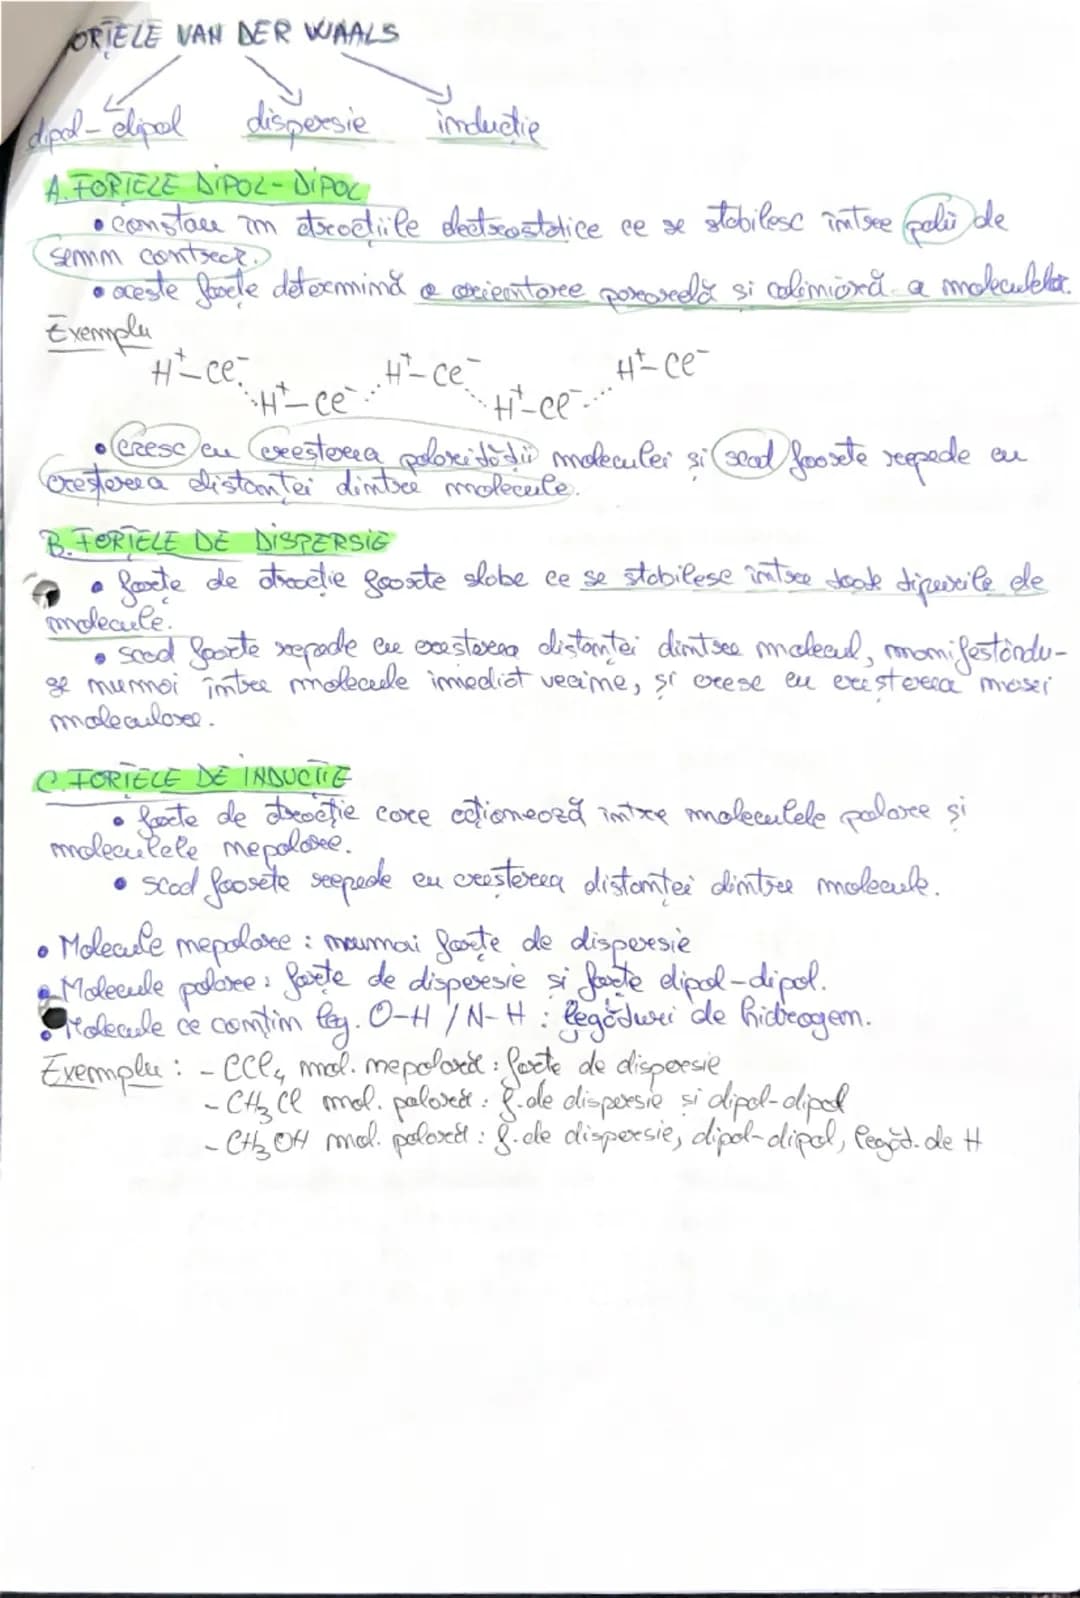 FORȚELE VAN DER WAALS
dipol-dipol dispersie inducție
A. FORȚELE DIPOL-DIPOL
• constau în atracțiile electrostatice ce se stabilesc între polii de
semn contrar.
• aceste forțe determină o orientare paralelă și coliniară a moleculelor.
Exemplu
H⁺-Cl⁻ H⁺-Cl⁻ H⁺-Cl⁻
H⁺-Cl⁻ H⁺-Cl⁻
• cresc cu creșterea polarității moleculei și scad foarte repede cu
creșterea distanței dintre molecule.
B. FORȚELE DE DISPERSIE
• forțe de atracție foarte slabe ce se stabilesc între toate tipurile de
molecule.
• scad foarte repede cu creșterea distanței dintre molecul, manifestându-
se numai între molecule imediat vecine, și cresc cu creșterea masei
moleculare.
C. FORȚELE DE INDUCȚIE
• forțe de atracție care acționează între moleculele polare și
moleculele nepolare.
• scad foarte repede cu creșterea distanței dintre molecule.
• Molecule nepolare : numai forțe de dispersie
• Molecule polare : forțe de dispersie și forțe dipol-dipol.
• Molecule ce conțin leg. O-H / N-H : legături de hidrogen.
Exemplu : - CCl₄ mol. nepolară : forțe de dispersie
- CH₃Cl mol. polară : f. de dispersie și dipol-dipol
- CH₃OH mol. polară : f. de dispersie, dipol-dipol, legăt. de H